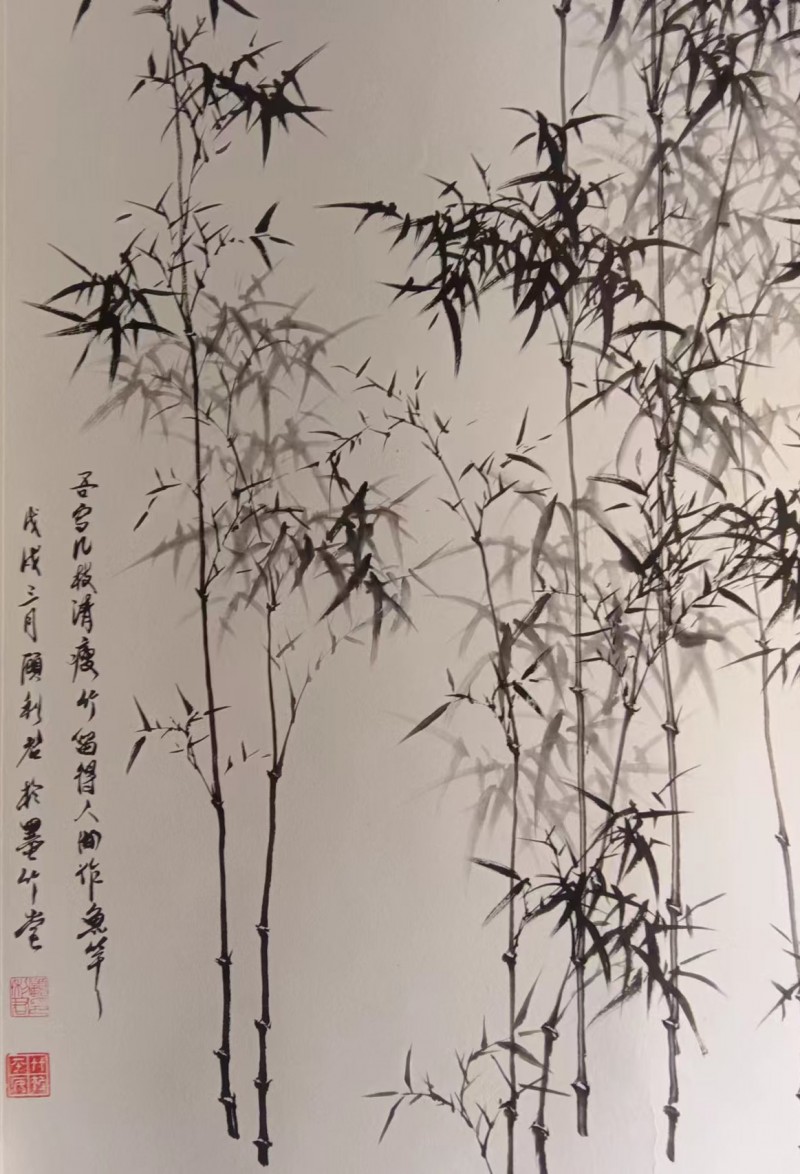 吾写几枝清瘦竹留得人间作鱼竿
戊戌三月顾利君于墨竹堂